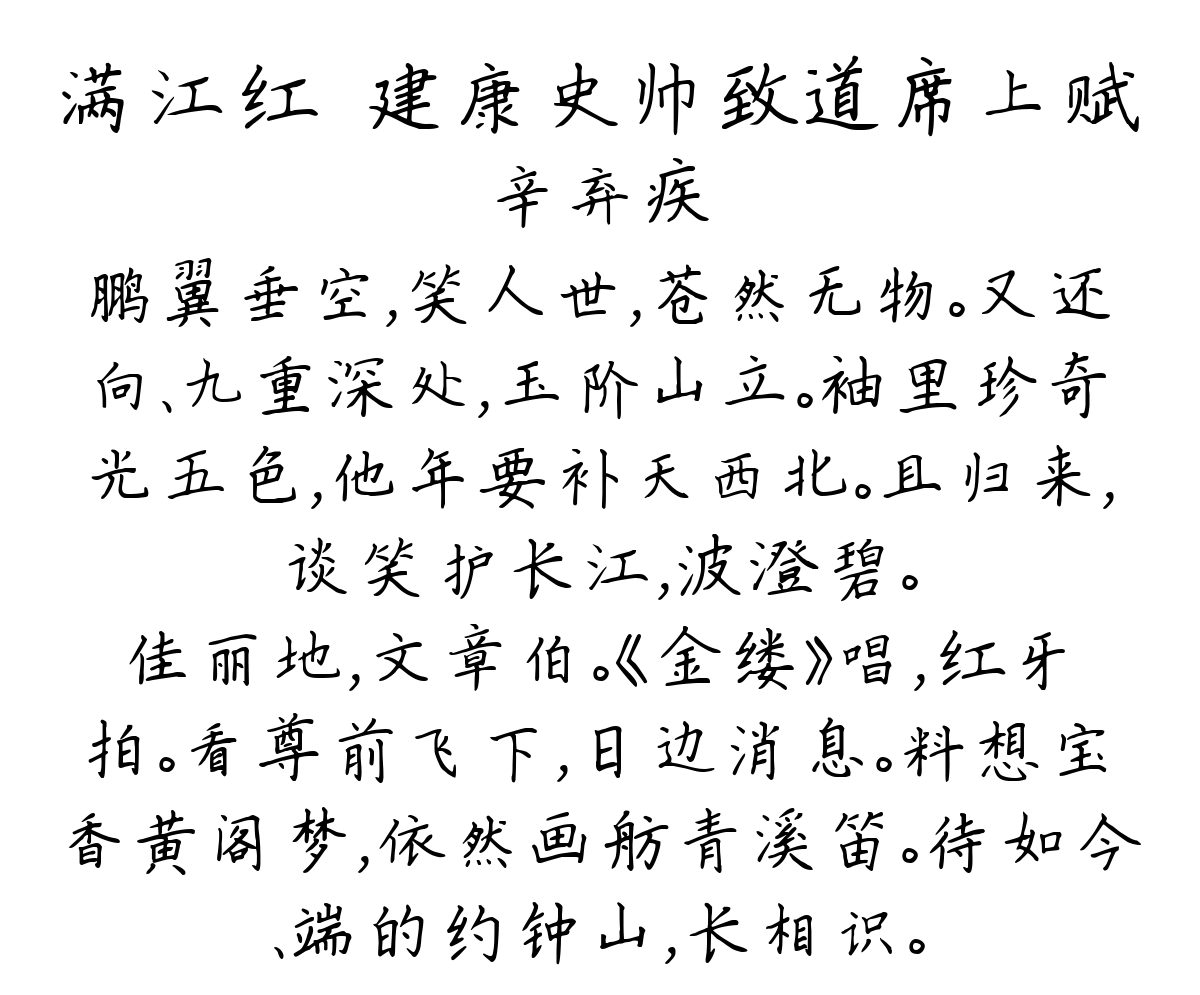 满江红 建康史帅致道席上赋
辛弃疾
鹏翼垂空,笑人世,苍然无物。又还
向、九重深处,玉阶山立。袖里珍奇
光五色,他年要补天西北。且归来,
谈笑护长江,波澄碧。
佳丽地,文章伯。《金缕》唱,红牙
拍。看尊前飞下,日边消息。料想宝
香黄阁梦,依然画舫青溪笛。待如今
、端的约钟山,长相识。